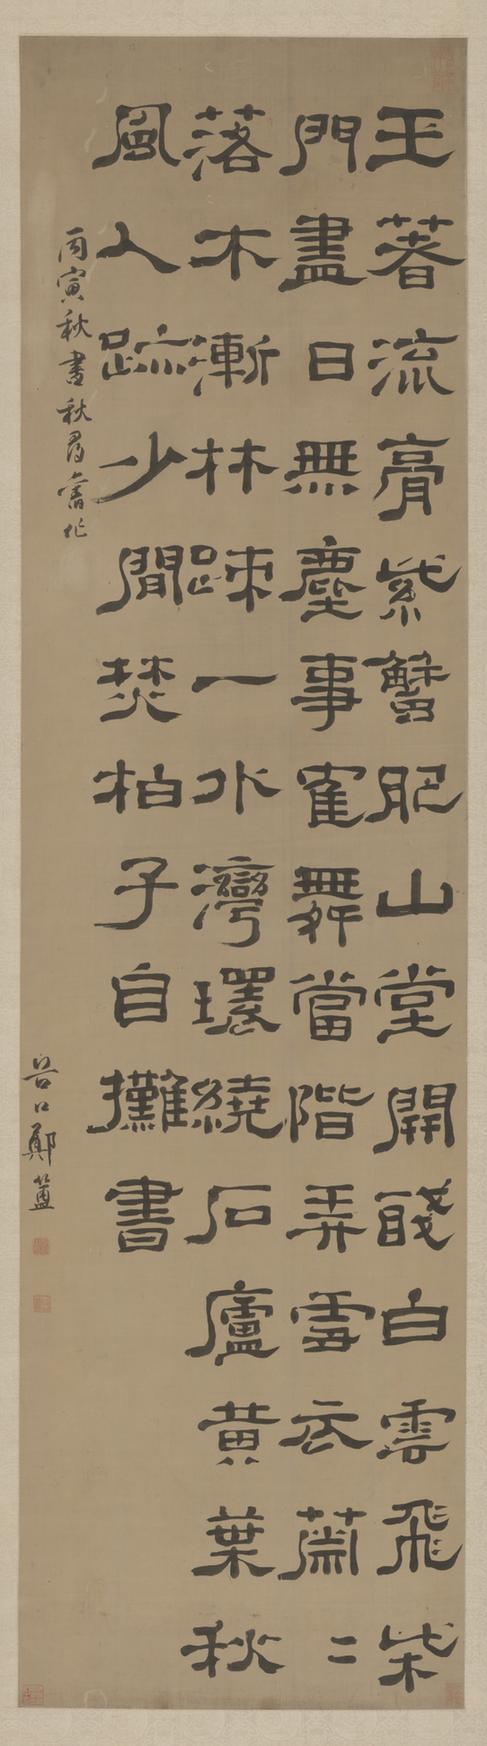 玉著流膏紫蟹肥山堂開醆白雲飛柴
門盡日無塵事寉舞當階弄雪衣蕭二
落木漸林踈一水灣環繞石廬黃葉秋
風人跡少閒焚柏子自攤書
丙寅秋書秋尋舊作
谷口鄭簠